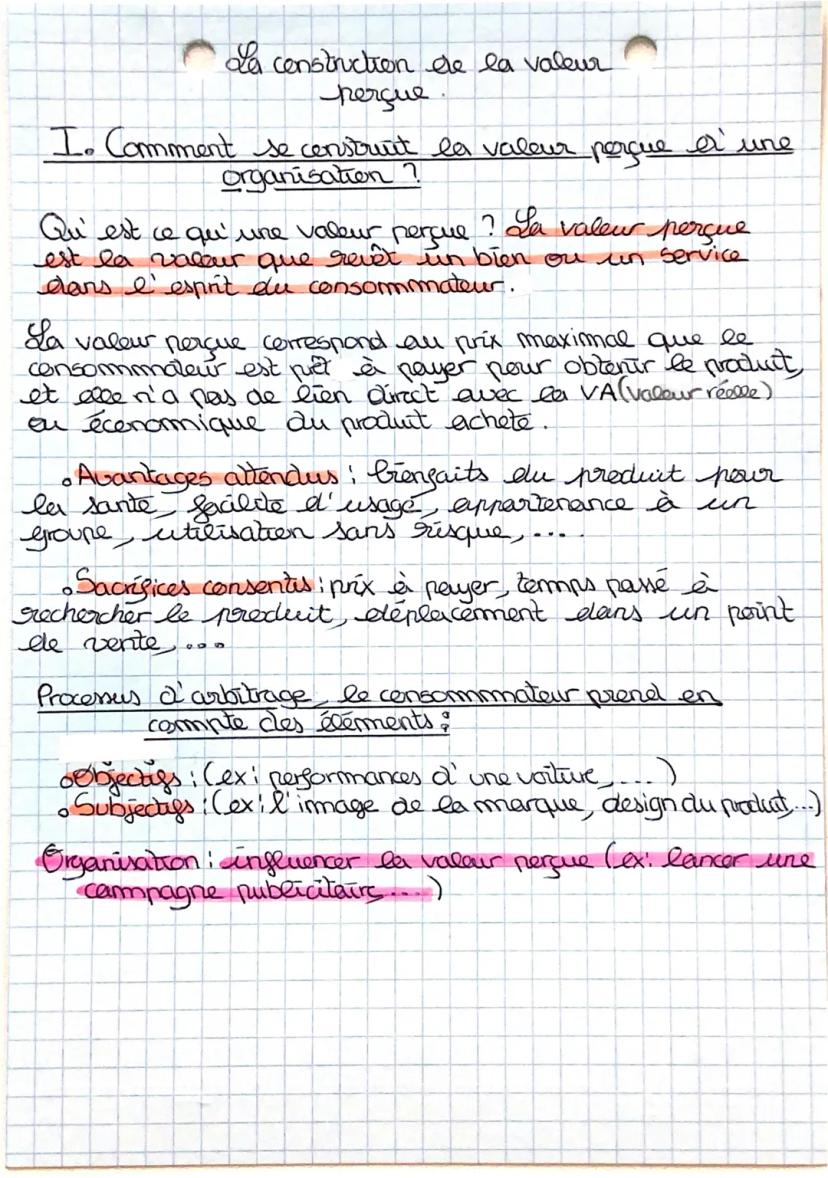 La construction de la valeur
perçue.
I. Comment se construit la valeur perçue d'une
organisation ?
Qu'est ce qu'une valeur perçue ? La valeur perçue
est la valeur que revêt un bien ou un service
dans l'esprit du consommateur.
La valeur perçue correspond au prix maximal que le
consommateur est prêt à payer pour obtenir le produit,
et elle n'a pas de lien direct avec la VA (valeur réelle)
ou économique du produit acheté.
• Avantages attendus : bienfaits du produit pour
la santé, facilité d'usage, appartenance à un
groupe, utilisation sans risque, ....
• Sacrifices consentis : prix à payer, temps passé à
rechercher le produit, déplacement dans un point
de vente, ...
Processus d'arbitrage, le consommateur prend en
compte des éléments :
• Objectifs : (ex : performances d'une voiture, ...)
• Subjectifs : (ex : l'image de la marque, design du produit, ...)
Organisation : influencer la valeur perçue (ex : lancer une
campagne publicitaire, ...)